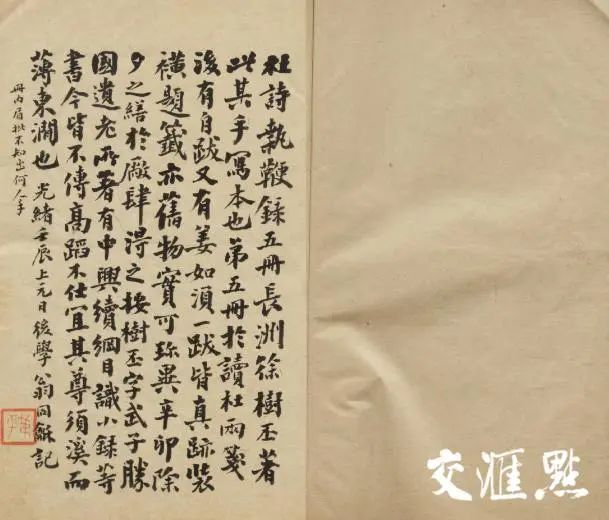 杜詩執鞭錄五冊長洲徐樹丕著
此其手寫本也第五冊於讀杜兩箋
後有自跋又有姜如須一跋皆真跡裝
襀題籤亦舊物寶可珍異辛卯除
夕之繕於廠肆得之按樹丕字武子勝
國遺老所著有中興續綱目識小錄等
書今皆不傳高蹈不仕宜其尊須溪而
薄東澗也 光緒壬辰上元日後學翁同龢記
冊内眉批不知出何人手
交滙點